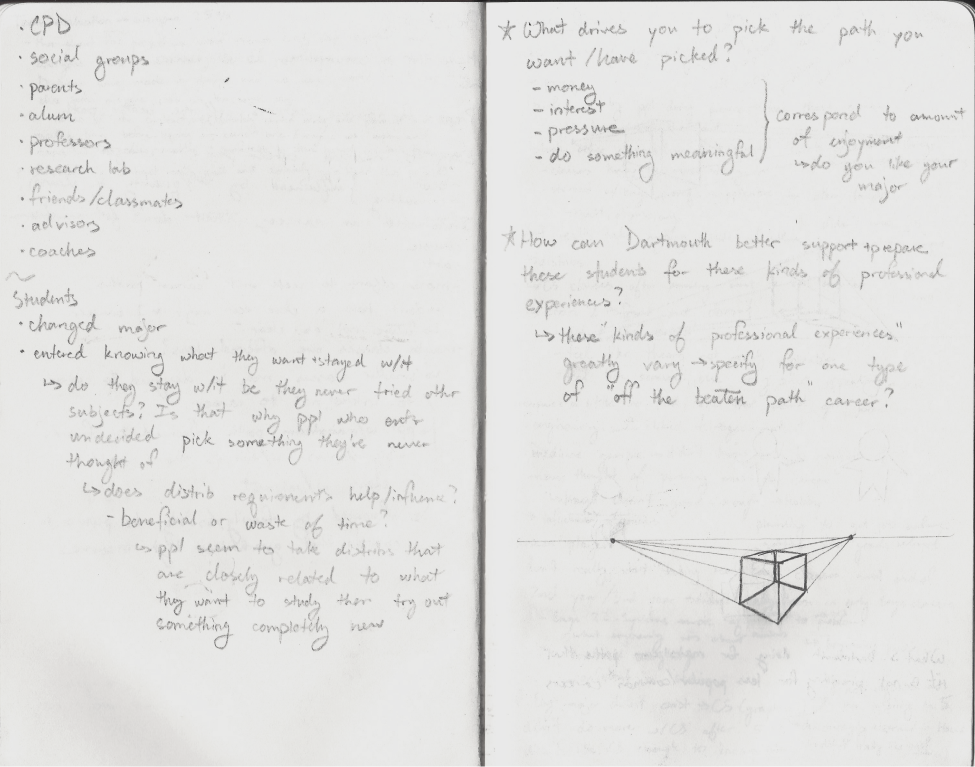 · CPD
· social groups
· parents
· alum
· professors
· research lab
· friends/classmates
· advisors
· coaches
~
Students
· changed major
· entered knowing what they want + stayed w/it
↳ do they stay w/it bc they never tried othr
subjects? Is that why ppl who entr
undecided pick something they're never
thought of
↳ does distrib requirements help/influence?
- beneficial or waste of time?
↳ ppl seem to take distribs that
are closely related to what
they want to study then try out
something completely new
* What drives you to pick the path you
want/have picked?
- money
- interest
- pressure
- do something meaningful
correspond to amount
of enjoyment
↳ do you like your
major
* How can Dartmouth better support + prepare
these students for these kinds of professional
experiences?
↳ these "kinds of professional experiences"
greatly vary → specify for one type
of "off the beaten path" career?